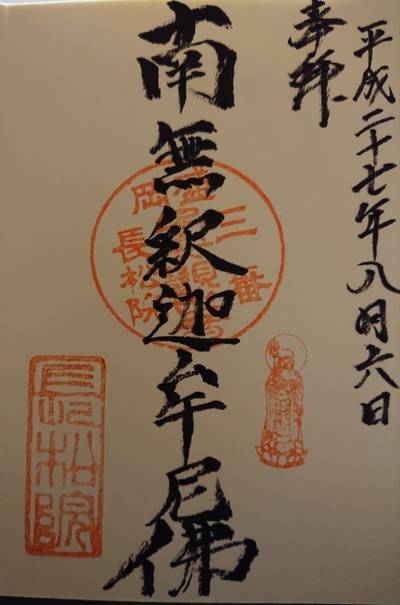 平成二十七年八月六日
奉拝
南無釈迦牟尼佛
三番
岡
長松院
長松院